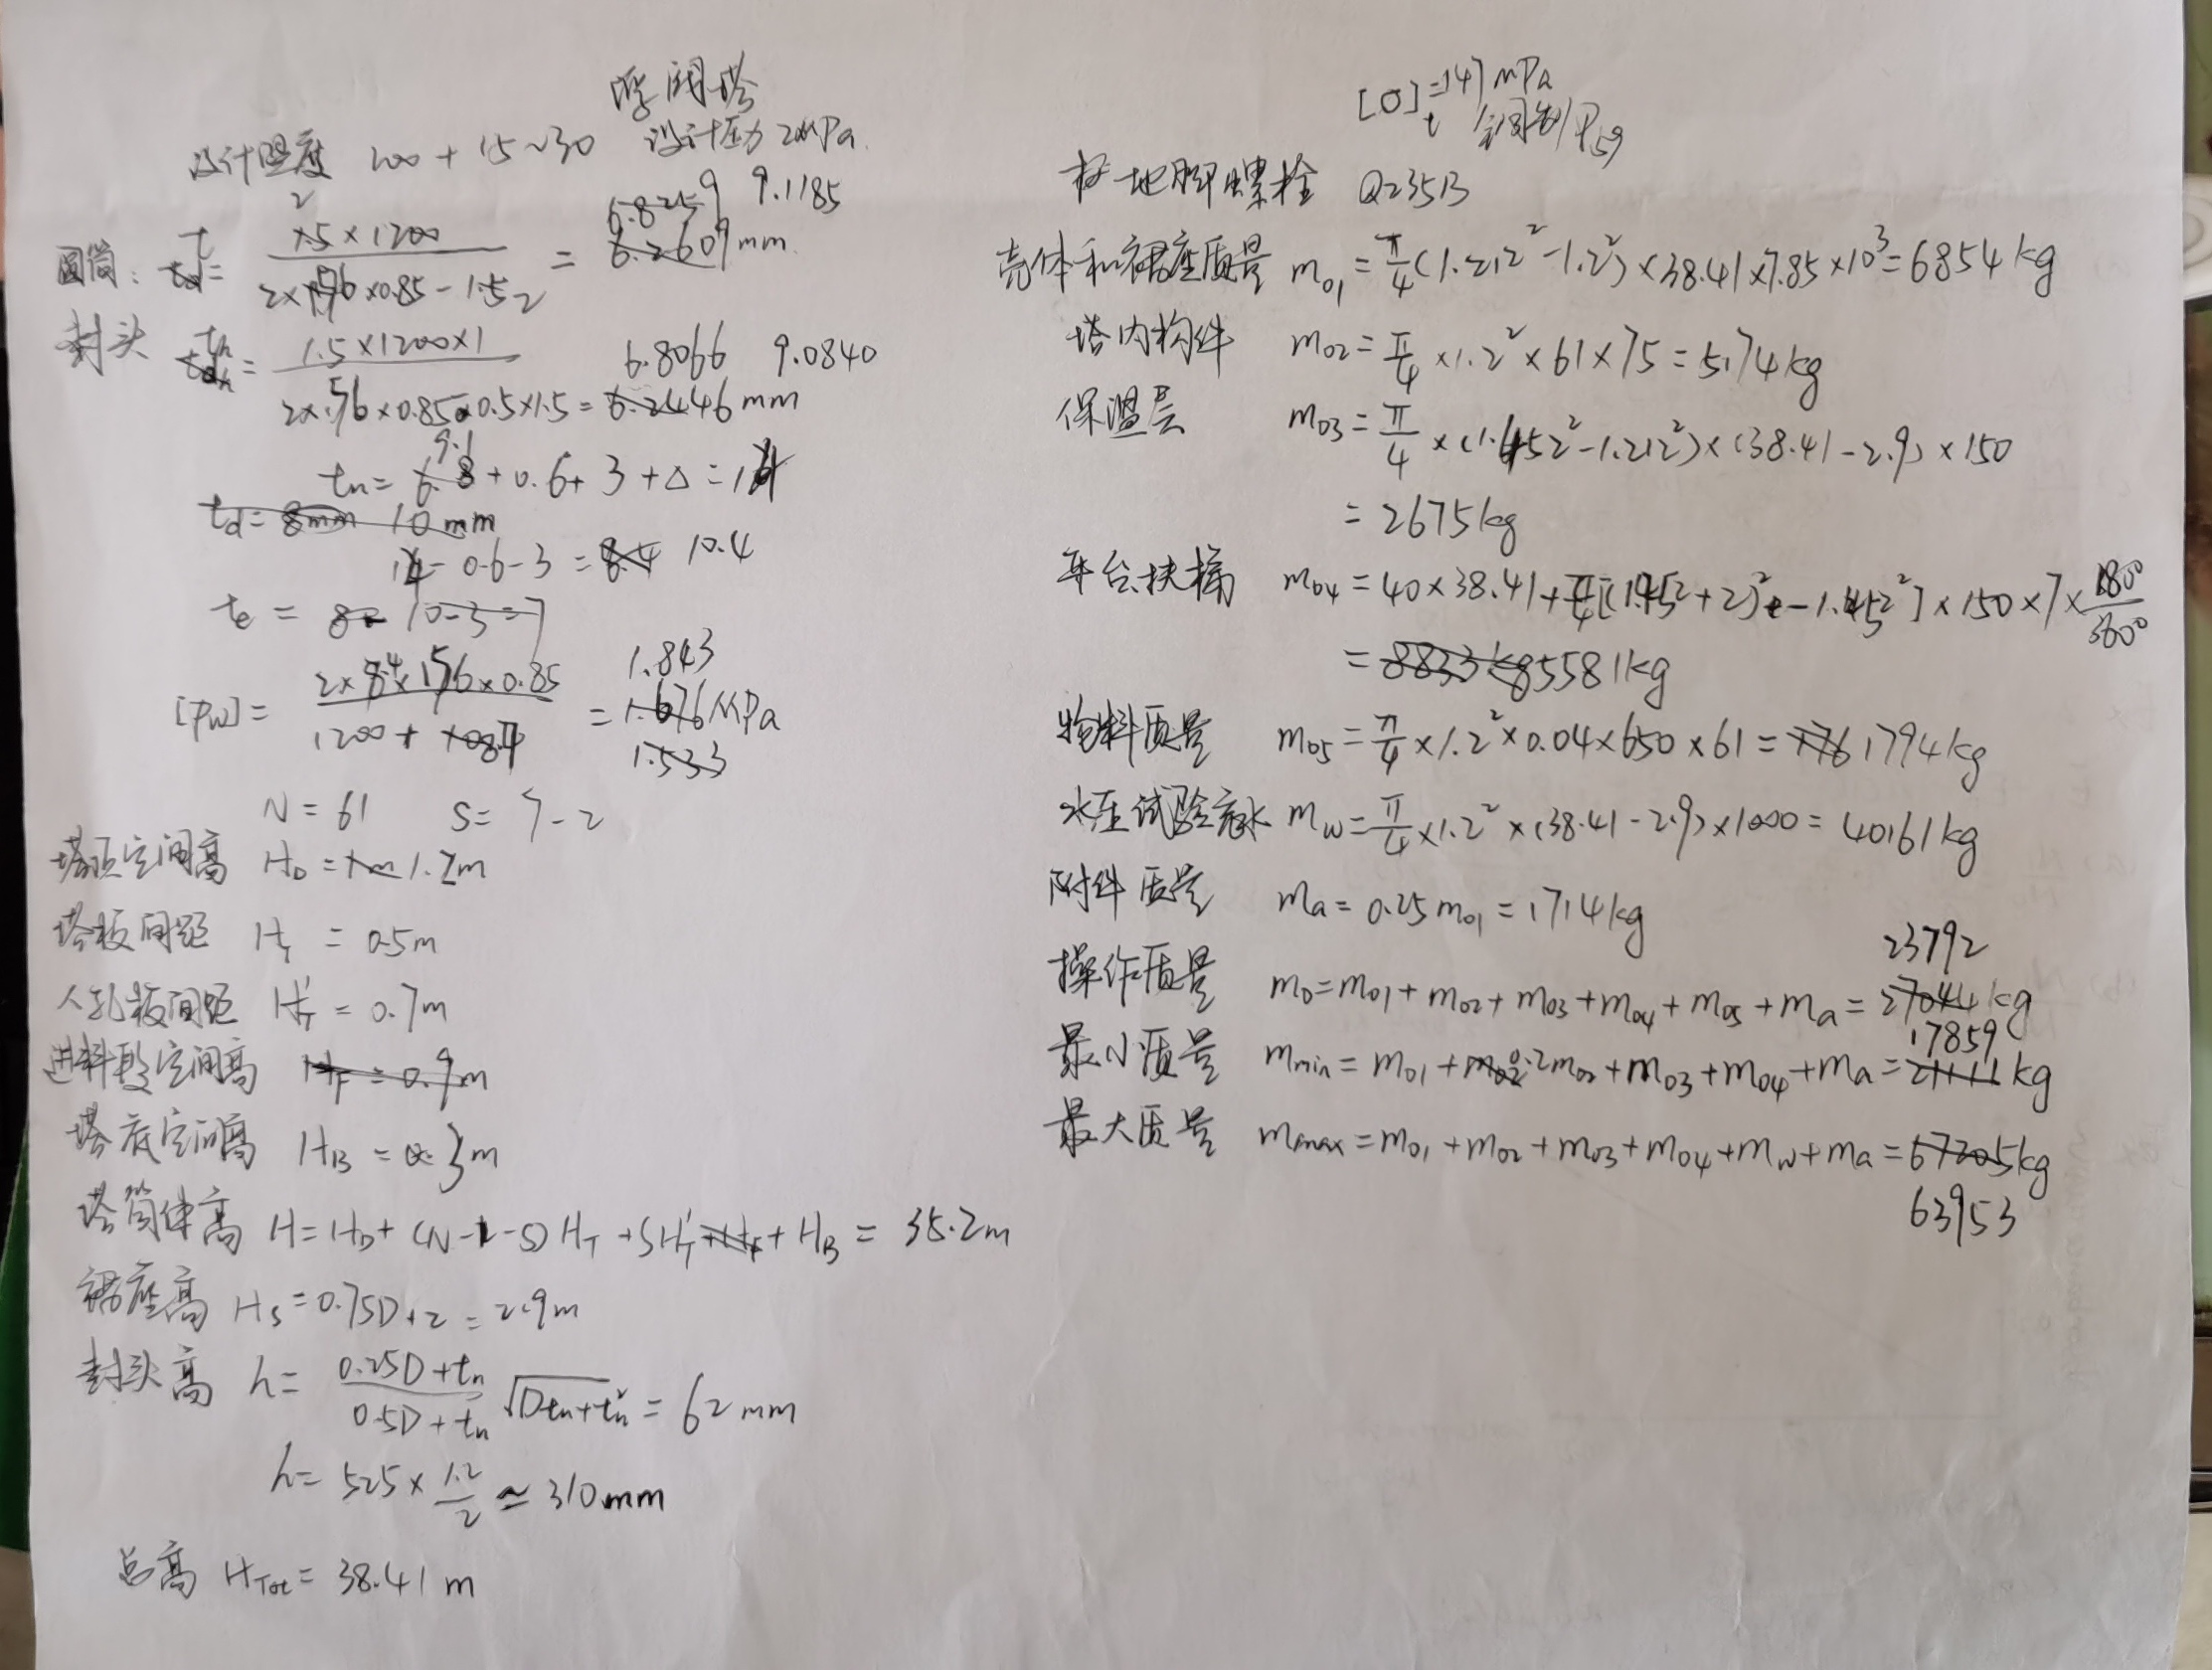 浮阀塔
设计温度 200 + 15~30 设计压力 2MPa.
2 6.8259 9.1185
圆筒: t = 1.5×1200 / 2×156×0.85-1.5 2 = 6.2609 mm
封头 th = 1.5×1200×1 / 2×156×0.85-0.5×1.5 = 6.2446 mm 6.8066 9.0840
9.1
tn = 6.8 + 0.6 + 3 + Δ = 14
td = 8mm 10mm
14 - 0.6 - 3 = 8.4 10.4
te = 8- 10-3=7
[Pw] = 2×8.4×156×0.85 / 1200 + 8.4 = 1.676 MPa 1.843
1.533
N = 61 S = 7-2
塔顶空间高 HD = 1m 1.2m
塔板间距 HT = 0.5m
人孔板间距 HT' = 0.7m
进料段空间高 HF = 0.9m
塔底空间高 HB = 3m
塔筒体高 H = HD + (N-1-S) HT + SHT' + HF + HB = 35.2m
裙座高 Hs = 0.75D+2 = 2.9m
封头高 h = 0.25D+tn / 0.5D+tn √Dtn+tn² = 62mm
h = 525 × 1.2/2 ≃ 310mm
总高 HTot = 38.41 m
[σ]t = 147 MPa
钢制 P59
地脚螺栓 Q235B
壳体和裙座质量 m01 = π/4 (1.212²-1.2²) × 38.41 × 7.85 × 10³ = 6854 kg
塔内构件 m02 = π/4 × 1.2² × 61 × 75 = 5174 kg
保温层 m03 = π/4 × (1.452²-1.212²) × (38.41-2.9) × 150
= 2675 kg
平台扶梯 m04 = 40 × 38.41 + π/4 [(1.452+2)² - 1.452²] × 150 × 7 × 180°/360°
= 8833 kg 5581 kg
物料质量 m05 = π/4 × 1.2² × 0.04 × 650 × 61 = 1794 kg
水压试验充水 mw = π/4 × 1.2² × (38.41-2.9) × 1000 = 40161 kg
附件质量 ma = 0.25 m01 = 1714 kg
23792
操作质量 m0 = m01 + m02 + m03 + m04 + m05 + ma = 27044 kg
17859
最小质量 mmin = m01 + 0.2m02 + m03 + m04 + ma = 21111 kg
最大质量 mmax = m01 + m02 + m03 + m04 + mw + ma = 67205 kg
63953